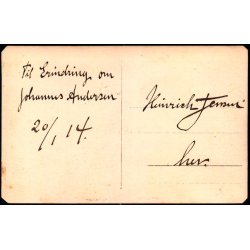 Til Erindring om
Johannes Andersen
20/1 14.
Heinrich Jensen
her.